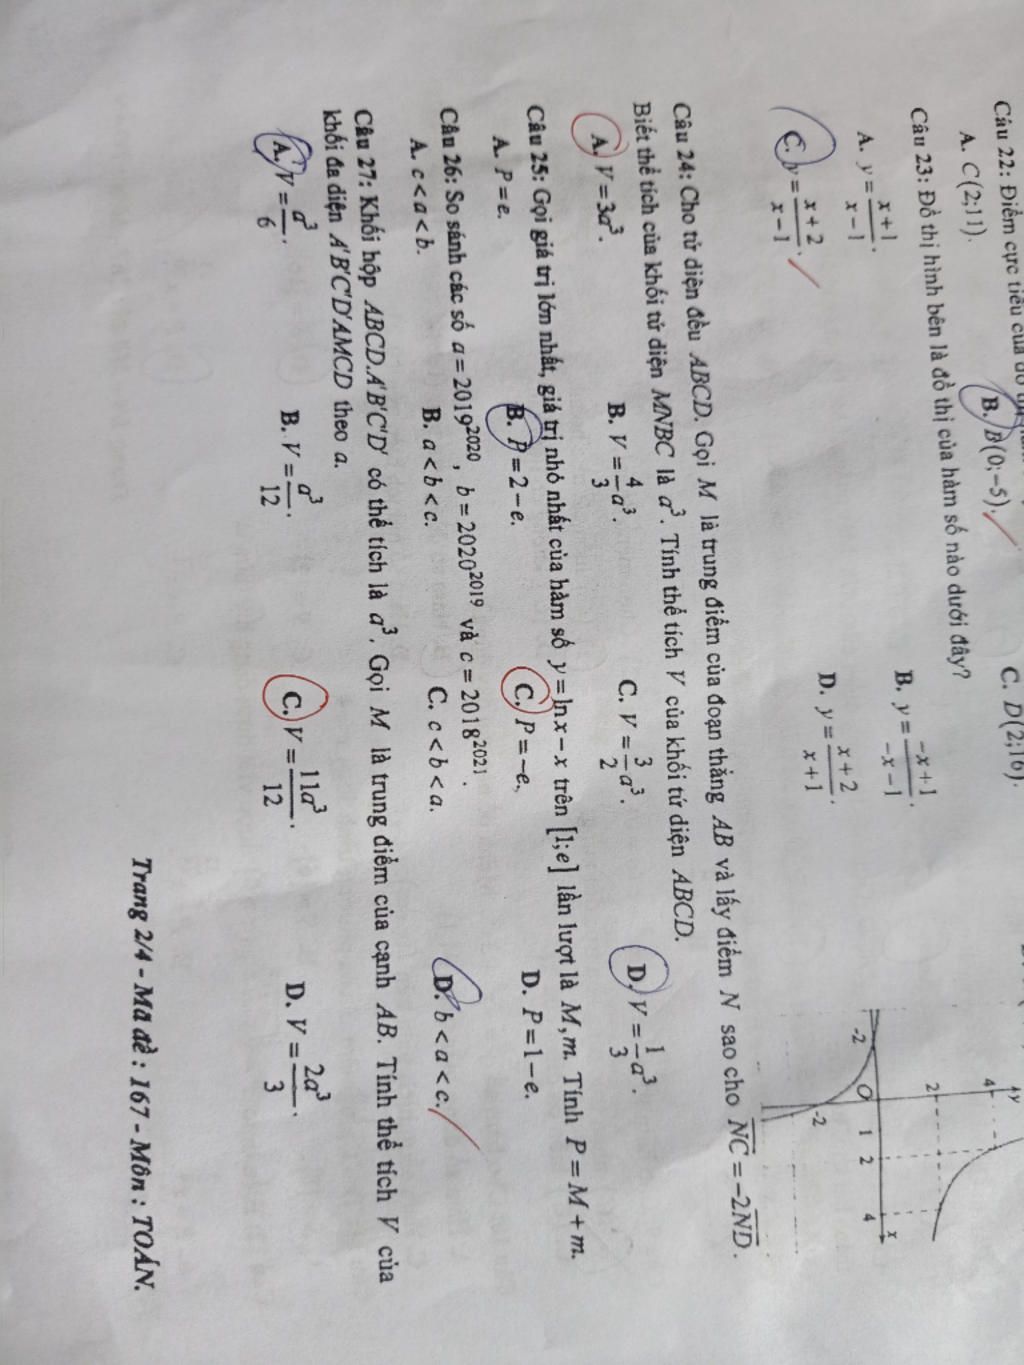 Câu 22: Điểm cực tiểu của
A. C(2;11).
B. B(0;−5).
C. D(2;16).
Câu 23: Đồ thị hình bên là đồ thị của hàm số nào dưới đây?
A. y = \frac{x+1}{x−1}.
B. y = \frac{−x+1}{−x−1}.
C. y = \frac{x+2}{x−1}.
D. y = \frac{x+2}{x+1}.
y
4
2
-2
O
1
2
4
x
-2
Câu 24: Cho tứ diện đều ABCD. Gọi M là trung điểm của đoạn thẳng AB và lấy điểm N sao cho \overline{NC} = −2\overline{ND}.
Biết thể tích của khối tứ diện MNBC là a³. Tính thể tích V của khối tứ diện ABCD.
A. V = 3a³.
B. V = \frac{4}{3}a³.
C. V = \frac{3}{2}a³.
D. V = \frac{1}{3}a³.
Câu 25: Gọi giá trị lớn nhất, giá trị nhỏ nhất của hàm số y = ln x − x trên [1;e] lần lượt là M, m. Tính P = M + m.
A. P = e.
B. P = 2 − e.
C. P = −e.
D. P = 1 − e.
Câu 26: So sánh các số a = 2019²⁰²⁰, b = 2020²⁰¹⁹ và c = 2018²⁰²¹.
A. c < a < b.
B. a < b < c.
C. c < b < a.
D. b < a < c.
Câu 27: Khối hộp ABCD.A'B'C'D' có thể tích là a³. Gọi M là trung điểm của cạnh AB. Tính thể tích V của
khối đa diện A'B'C'D'AMCD theo a.
A. V = \frac{a³}{6}.
B. V = \frac{a³}{12}.
C. V = \frac{11a³}{12}.
D. V = \frac{2a³}{3}.
Trang 2/4 - Mã đề : 167 - Môn : TOÁN.